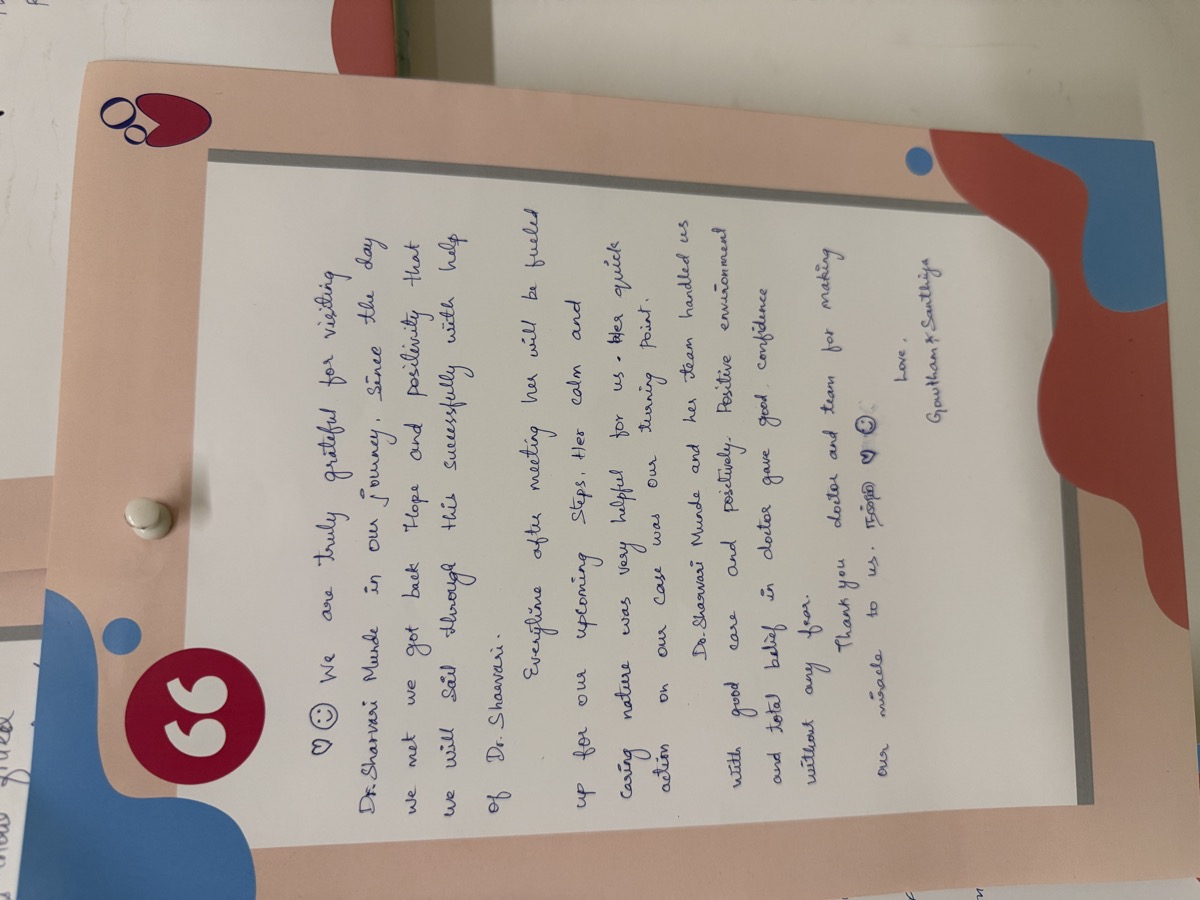 ♡☺ We are truly grateful for visiting
Dr. Sharvari Munde in our journey. Since the day
we met we got back Hope and positivity that
we will sail through this successfully with help
of Dr. Sharvari.
Everytime after meeting her will be fueled
up for our upcoming steps. Her calm and
caring nature was very helpful for us. Her quick
action on our case was our turning point.
Dr. Sharvari Munde and her team handled us
with good care and positively. Positive environment
and total belief in doctor gave good confidence
without any fear.
Thank you doctor and team for making
our miracle to us. ♥ ☺
Love,
Gowtham & Santhiya